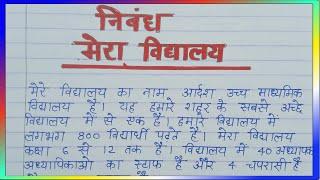 निबंध
मेरा विद्यालय
मेरे विद्यालय का नाम आर्दश उच्च माध्यमिक
विद्यालय है। यह हमारे शहर के सबसे अच्छे
विद्यालय में से एक है। हमारे विद्यालय में
लगभग 800 विद्यार्थी पढ़ते हैं। मेरा विद्यालय
कक्षा 6 से 12 तक है। विद्यालय में 40 अध्यापक
अध्यापिकाओं का स्टाफ है और 4 चपरासी है